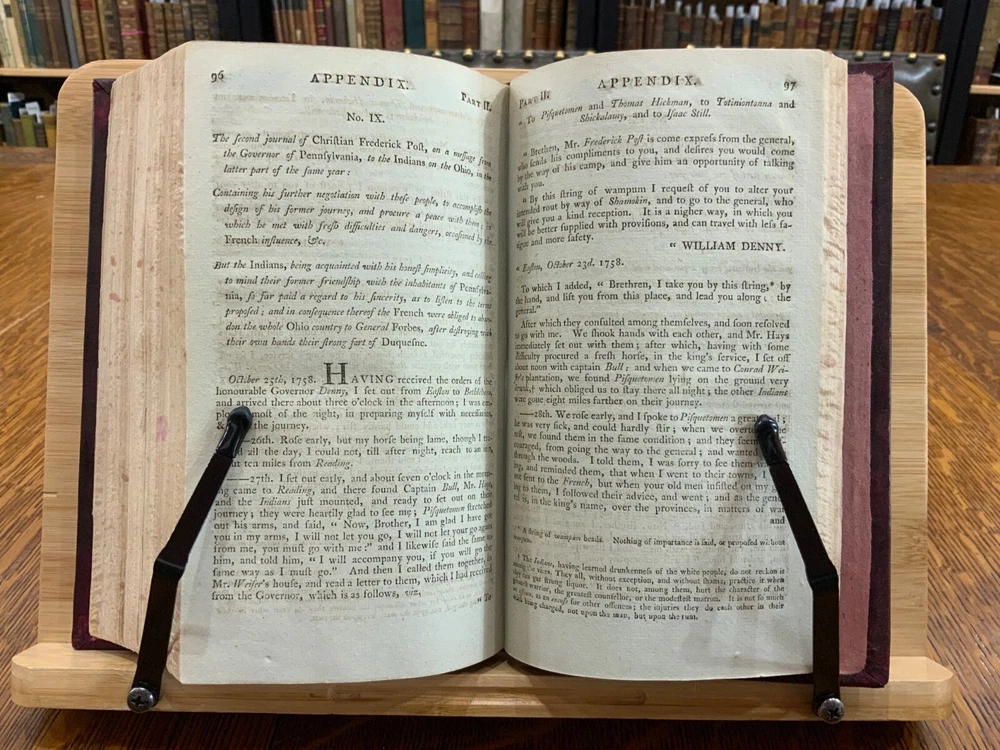 96 APPENDIX. PART II.
No. IX.
The second journal of Christian Frederick Post, on a message from
the Governor of Pennsylvania, to the Indians on the Ohio, in the
latter part of the same year:
Containing his further negotiation with these people, to accomplish the
design of his former journey, and procure a peace with them; in
which he met with fresh difficulties and dangers, occasioned by the
French influence, &c.
But the Indians, being acquainted with his honest simplicity, and calling
to mind their former friendship with the inhabitants of Pennsylva-
nia, so far paid a regard to his sincerity, as to listen to the terms
proposed; and in consequence thereof the French were obliged to aban-
don the whole Ohio country to General Forbes, after destroying with
their own hands their strong fort of Duquesne.
October 25th, 1758. HAVING received the orders of the
honourable Governor Denny, I set out from Easton to Bethlehem,
and arrived there about three o'clock in the afternoon; I was em-
most of the night, in preparing myself with necessaries,
& the journey.
26th. Rose early, but my horse being lame, though I tra-
all the day, I could not, till after night, reach to an
ten miles from Reading.
—27th. I set out early, and about seven o'clock in the morn-
ing came to Reading, and there found Captain Bull, Mr. Hays,
and the Indians just mounted, and ready to set out on their
journey; they were heartily glad to see me; Pisquetomen stretched
out his arms, and said, "Now, Brother, I am glad I have got
you in my arms, I will not let you go, I will not let you go again
from me, you must go with me:" and I likewise said the same to
him, and told him, "I will accompany you, if you will go the
same way as I must go." And then I called them together, in
Mr. Weiser's house, and read a letter to them, which I had received
from the Governor, which is as follows, viz.
"To
PART II. APPENDIX. 97
"To Pisquetomen and Thomas Hickman, to Totiniontonna and
Shickalamy, and to Isaac Still.
"Brethren, Mr. Frederick Post is come express from the general,
who sends his compliments to you, and desires you would come
by the way of his camp, and give him an opportunity of talking
with you.
"By this string of wampum I request of you to alter your
intended rout by way of Shamokin, and to go to the general, who
will give you a kind reception. It is a nigher way, in which you
will be better supplied with provisions, and can travel with less fa-
tigue and more safety.
"WILLIAM DENNY.
"Easton, October 23d. 1758.
To which I added, "Brethren, I take you by this string,* by
the hand, and lift you from this place, and lead you along the
general."
After which they consulted among themselves, and soon resolved
to go with me. We shook hands with each other, and Mr. Hays
immediately set out with them; after which, having with some
difficulty procured a fresh horse, in the king's service, I set off
about noon with captain Bull; and when we came to Conrad Wei-
ser's plantation, we found Pisquetomen lying on the ground very
drunk,† which obliged us to stay there all night; the other Indians
were gone eight miles farther on their journey.
—28th. We rose early, and I spoke to Pisquetomen a great
he was very sick, and could hardly stir; when we overtook the
rest, we found them in the same condition; and they seemed
couraged, from going the way to the general; and wanted
through the woods. I told them, I was sorry to see them
ing, and reminded them, that when I went to their towns, I
not sent to the French, but when your old men insisted on my
ing to them, I followed their advice, and went; and as the general
is, in the king's name, over the provinces, in matters of war
and
* A string of wampum beads. Nothing of importance is said, or proposed without
wampum.
† The Indians, having learned drunkenness of the white people, do not reckon it
among the vices. They all, without exception, and without shame, practice it when
they can get strong liquor. It does not, among them, hurt the character of the
greatest warrior, the greatest counsellor, or the modestest matron. It is not so much
an offence, as an excuse for other offences; the injuries they do each other in their
drink being charged, not upon the man, but upon the rum.